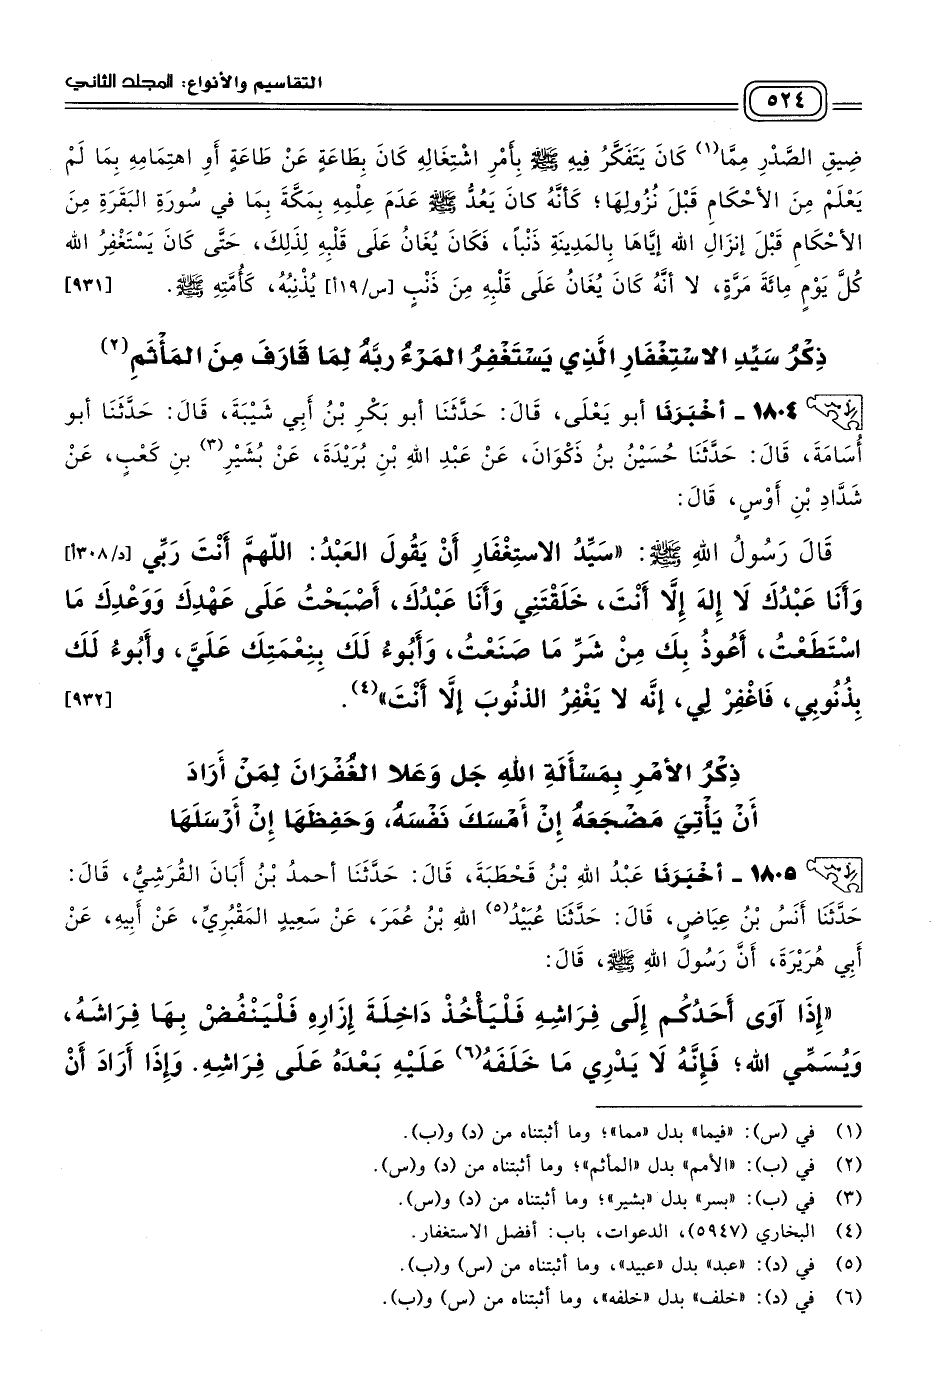 التقاسيم والأنواع: المجلد الثاني
٥٢٤
ضِيقِ الصَّدْرِ مِمَّا(١) كَانَ يَتَفَكَّرُ فِيهِ ﷺ بِأَمْرِ اشْتِغَالِهِ كَانَ بِطَاعَةٍ عَنْ طَاعَةٍ أَوِ اهتِمَامِهِ بِمَا لَمْ
يَعْلَمْ مِنَ الأَحْكَامِ قَبْلَ نُزُولِهَا؛ كَأنَّهُ كانَ يَعُدُّ ﷺ عَدَمَ عِلْمِهِ بِمَكَّةَ بِمَا في سُورَةِ البَقَرَةِ مِنَ
الأحْكَامِ قَبْلَ إنزَالِ الله إيَّاهَا بِالمَدِينَةِ ذَنْباً، فَكَانَ يُغَانُ عَلَى قَلْبِهِ لِذلِكَ، حَتَّى كَانَ يَسْتَغْفِرُ الله
كُلَّ يَوْمٍ مِائَةَ مَرَّةٍ، لا أنَّهُ كَانَ يُغَانُ عَلَى قَلْبِهِ مِنَ ذَنْبٍ [س/١٩أ] يُذْنِبُهُ، كَأُمَّتِهِ ﷺ. [٩٣١]
ذِكْرُ سَيِّدِ الاسْتِغْفَارِ الَّذِي يَسْتَغْفِرُ المَرْءُ رَبَّهُ لِمَا قَارَفَ مِنَ المَأْثَمِ(٢)
١٨٠٤ - أخْبَرَنَا أبو يَعْلَى، قَالَ: حَدَّثَنَا أبو بَكْرِ بْنُ أبي شَيْبَةَ، قَالَ: حَدَّثَنَا أبو
أُسَامَةَ، قَالَ: حَدَّثَنَا حُسَيْنُ بنُ ذَكْوَانَ، عَنْ عَبْدِ اللهِ بْنِ بُرَيْدَةَ، عَنْ بُشَيْرِ(٣) بنِ كَعْبٍ، عَنْ
شَدَّادِ بْنِ أَوْسٍ، قَالَ:
قَالَ رَسُولُ اللهِ ﷺ: «سَيِّدُ الاسْتِغْفَارِ أَنْ يَقُولَ العَبْدُ: اللّهمَّ أَنْتَ رَبِّي [د/٣٠٨أ]
وَأَنَا عَبْدُكَ لَا إلهَ إلَّا أَنْتَ، خَلَقْتَنِي وَأَنَا عَبْدُكَ، أَصْبَحْتُ عَلَى عَهْدِكَ وَوَعْدِكَ مَا
اسْتَطَعْتُ، أَعُوذُ بِكَ مِنْ شَرِّ مَا صَنَعْتُ، وَأَبُوءُ لَكَ بِنِعْمَتِكَ عَلَيَّ، وأَبُوءُ لَكَ
بِذُنُوبِي، فَاغْفِرْ لِي، إنَّه لا يَغْفِرُ الذنُوبَ إلَّا أَنْتَ»(٤). [٩٣٢]
ذِكْرُ الأمْرِ بِمَسْأَلَةِ اللهِ جَل وَعَلا الغُفْرَانَ لِمَنْ أَرَادَ
أَنْ يَأْتِيَ مَضْجَعَهُ إنْ أَمْسَكَ نَفْسَهُ، وَحَفِظَهَا إنْ أَرْسَلَهَا
١٨٠٥ - أخْبَرَنَا عَبْدُ اللهِ بْنُ قَحْطَبَةَ، قَالَ: حَدَّثَنَا أحمدُ بْنُ أَبَانَ القُرَشِيُّ، قَالَ:
حَدَّثَنَا أَنَسُ بْنُ عِيَاضٍ، قَالَ: حَدَّثَنَا عُبَيْدُ(٥) اللهِ بْنُ عُمَرَ، عَنْ سَعِيدٍ المَقْبُرِيِّ، عَنْ أَبِيهِ، عَنْ
أَبِي هُرَيْرَةَ، أَنَّ رَسُولَ اللهِ ﷺ، قَالَ:
«إذَا آوَى أَحَدُكُم إلَى فِرَاشِهِ فَلْيَأْخُذْ دَاخِلَةَ إزَارِهِ فَلْيَنْفُضْ بِهَا فِرَاشَهُ،
وَيُسَمِّي الله؛ فَإنَّهُ لَا يَدْرِي مَا خَلَفَهُ(٦) عَلَيْهِ بَعْدَهُ عَلَى فِرَاشِهِ. وَإذَا أَرَادَ أَنْ
(١) في (س): «فيما» بدل «مما»؛ وما أثبتناه من (د) و(ب).
(٢) في (ب): «الأمم» بدل «المأثم»؛ وما أثبتناه من (د) و(س).
(٣) في (ب): «بسر» بدل «بشير»؛ وما أثبتناه من (د) و(س).
(٤) البخاري (٥٩٤٧)، الدعوات، باب: أفضل الاستغفار.
(٥) في (د): «عبد» بدل «عبيد»، وما أثبتناه من (س) و(ب).
(٦) في (د): «خلف» بدل «خلفه»، وما أثبتناه من (س) و(ب).